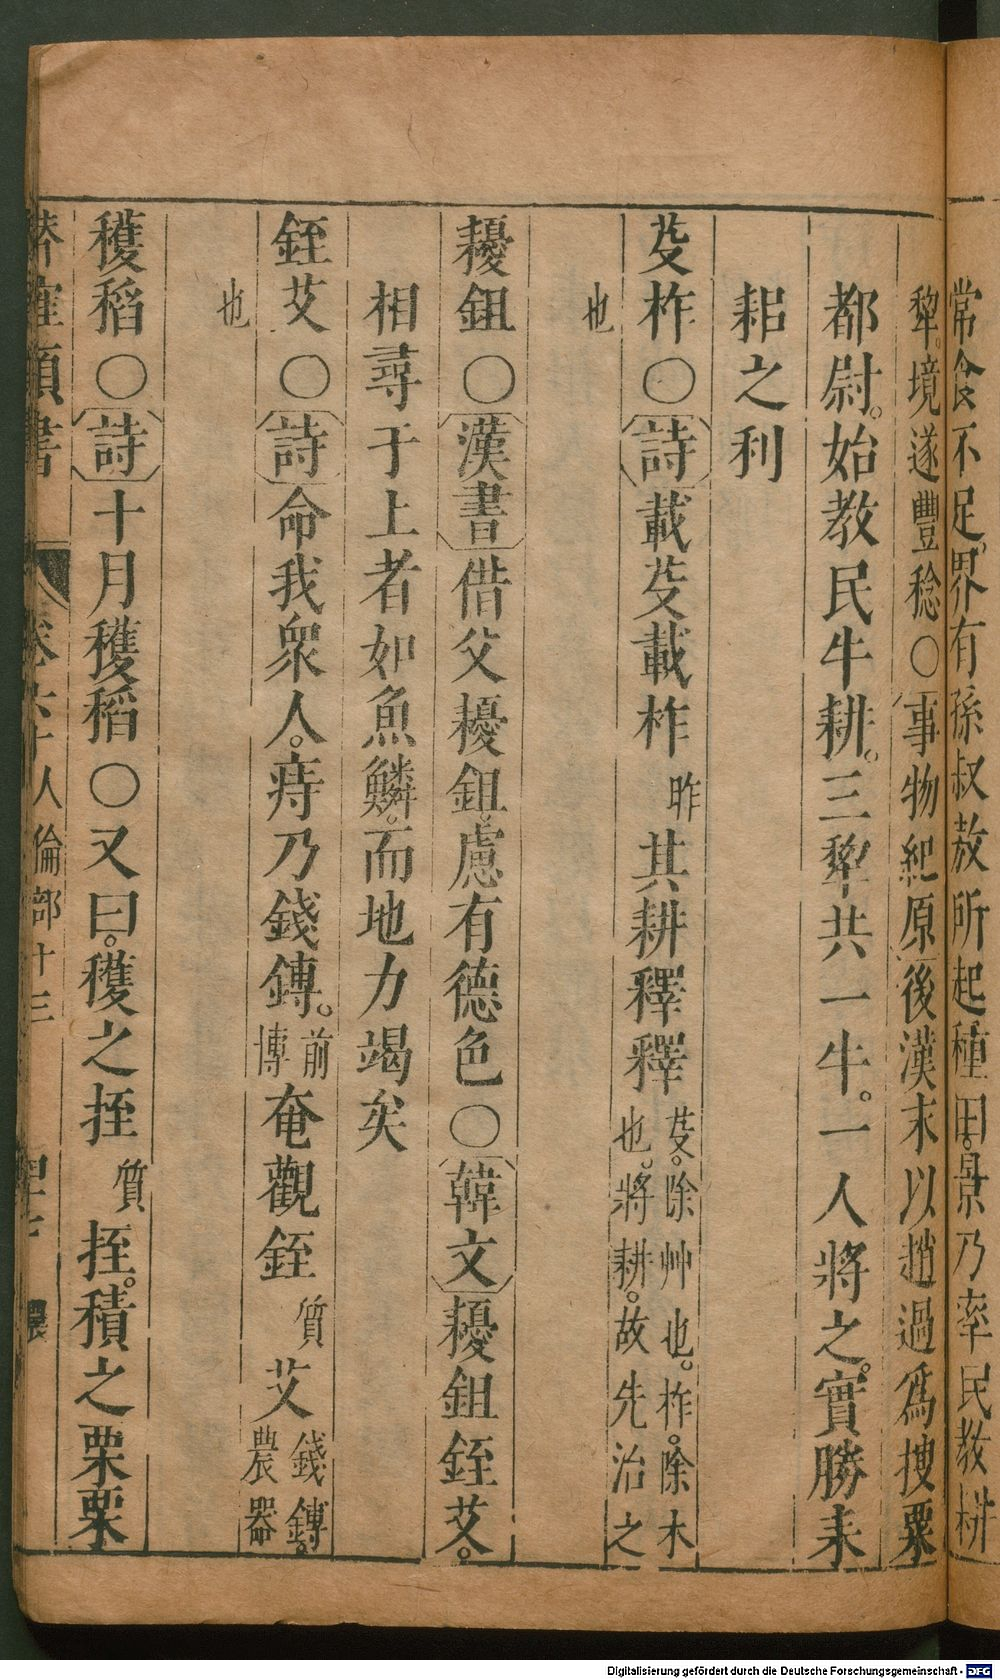 常食不足。界有孫叔敖所起稻田。景乃率民教耕
犂。境遂豐稔○事物紀原後漢末以趙過爲搜粟
都尉。始教民牛耕。三犂共一牛。一人將之。實勝耒
耜之利
芟柞○詩載芟載柞昨其耕釋釋芟。除艸也。柞。除木
也。將耕。故先治之
也
耰鉏○漢書借父耰鉏。慮有德色○韓文耰鉏銍艾。
相尋于上者如魚鱗。而地力竭矣
銍艾○詩命我衆人。庤乃錢鎛。前博奄觀銍質艾錢鎛。
農器
也
穫稻○詩十月穫稻○又曰。穫之挃質挃。積之栗栗
類書 卷 人倫部十三 農
Digitalisierung gefördert durch die Deutsche Forschungsgemeinschaft - DFG